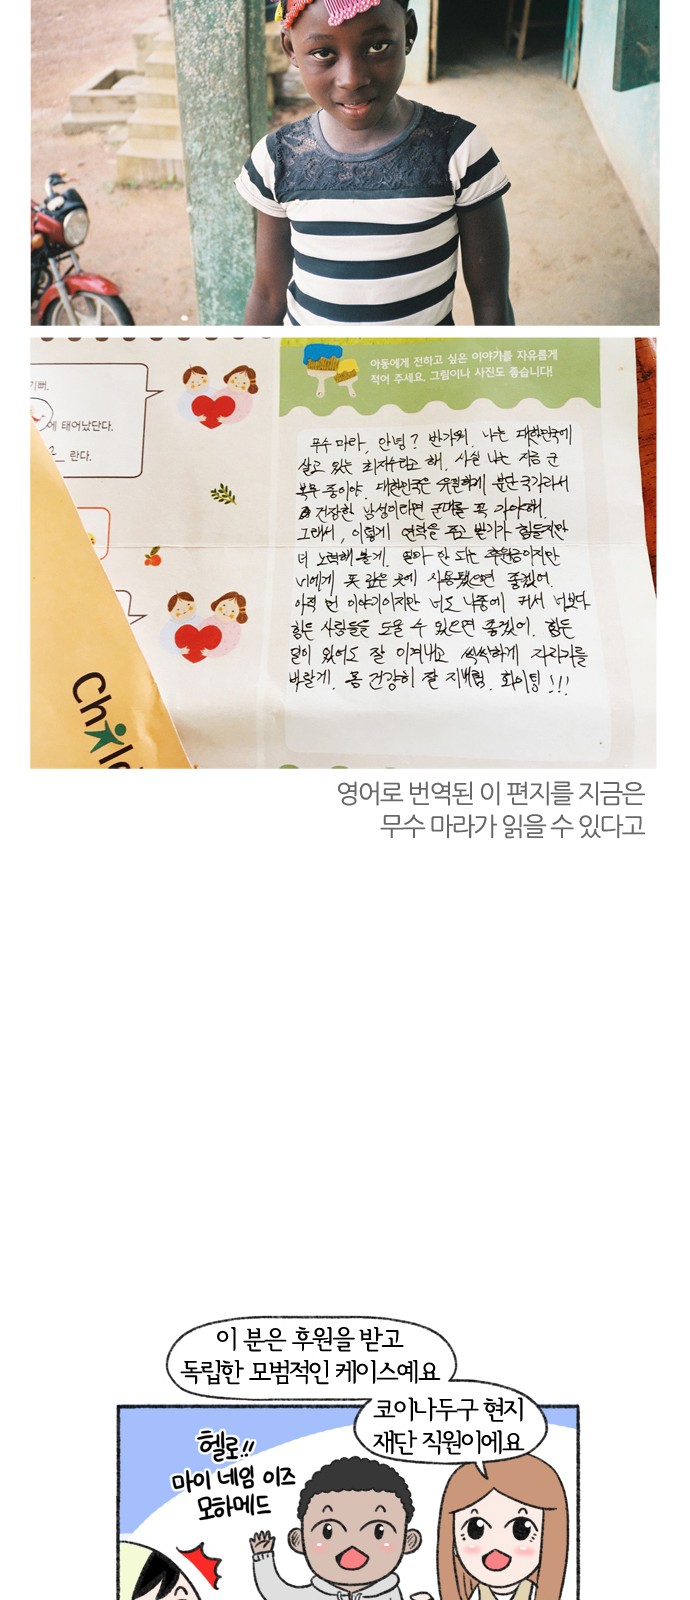 아동에게 전하고 싶은 이야기를 자유롭게
적어 주세요. 그림이나 사진도 좋습니다!
기뻐.
에 태어났단다.
란다.
무수 마라, 안녕? 반가워. 나는 대한민국에
살고 있는 최지수라고 해. 사실 나는 지금 군
복무 중이야. 대한민국은 유일하게 분단국가라서
건장한 남성이라면 군대를 꼭 가야해.
그래서, 이렇게 연락을 주고 받기가 힘들지만
더 노력해 볼게. 얼마 안 되는 후원금이지만
너에게 뜻 깊은 곳에 사용됐으면 좋겠어.
아직 먼 이야기이지만 너도 나중에 커서 너보다
힘든 사람들을 도울 수 있으면 좋겠어. 힘든
일이 있어도 잘 이겨내고 씩씩하게 자라기를
바랄게. 몸 건강히 잘 지내렴. 화이팅!!!
Chil
영어로 번역된 이 편지를 지금은
무수 마라가 읽을 수 있다고
이 분은 후원을 받고
독립한 모범적인 케이스예요
코이나두구 현지
재단 직원이에요
헬로!!
마이 네임 이즈
모하메드